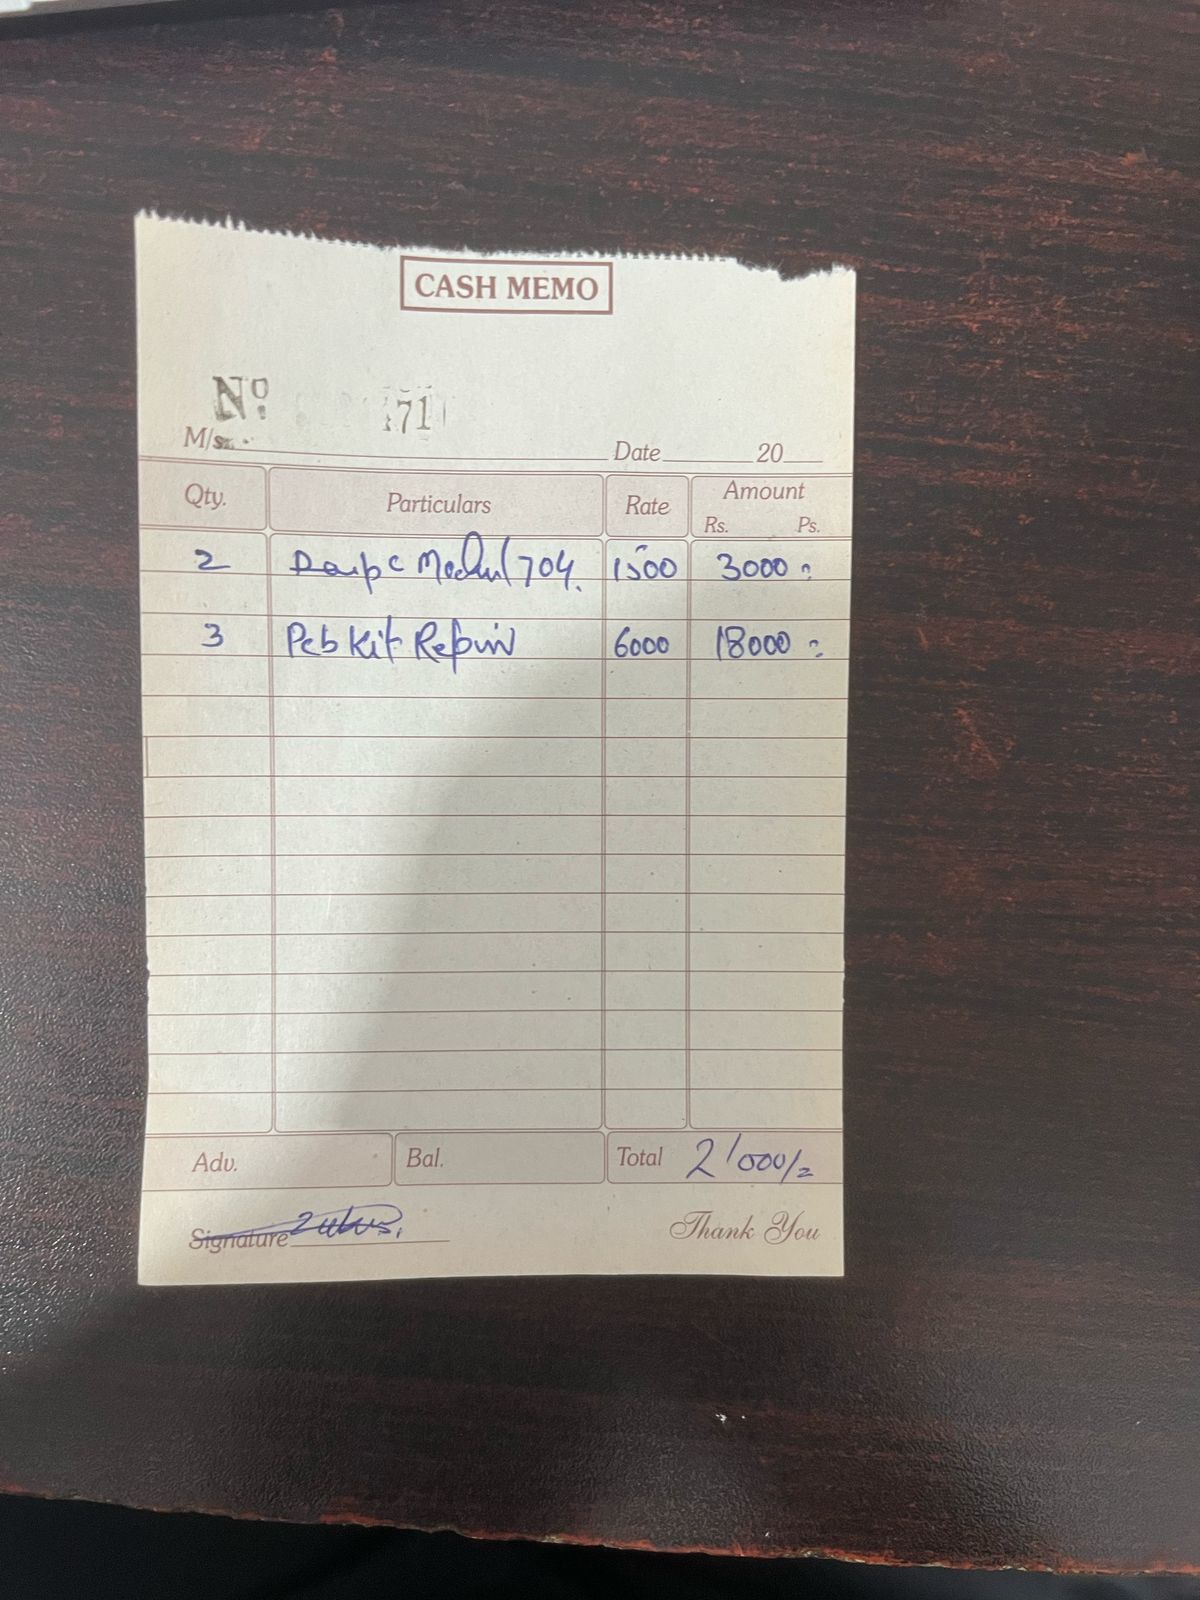 CASH MEMO
No. 71
M/s.
Date 20
Qty. Particulars Rate Amount
Rs. Ps.
2 704. 1500 3000
3 Pcb Kit Repair 6000 18000
Adv. Bal. Total 21000/=
Signature Thank You